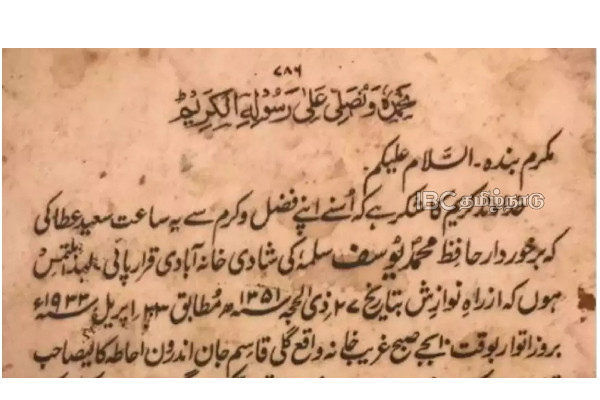 ۷۸۶
نحمدہ ونصلی علیٰ رسولہ الکریم
مکرم بندہ۔ السلام علیکم۔
خداوند کریم کا شکر ہے کہ اُسنے اپنے فضل و کرم سے یہ ساعت سعید عطا کی
IBC தமிழ்நாடு
کہ برخوردار حافظ محمد یوسف سلمہٗ کی شادی خانہ آبادی قرار پائی لہذا ملتمس
ہوں کہ از راہ نوازش بتاریخ ۲۷ ذی الحجہ ۱۳۵۱ سنہ ھ مطابق ۲۳ اپریل سنہ ۱۹۳۳ء
بروز اتوار بوقت ۱۰ بجے صبح غریب خانہ واقع گلی قاسم جان اندرون احاطہ کالیصاحب